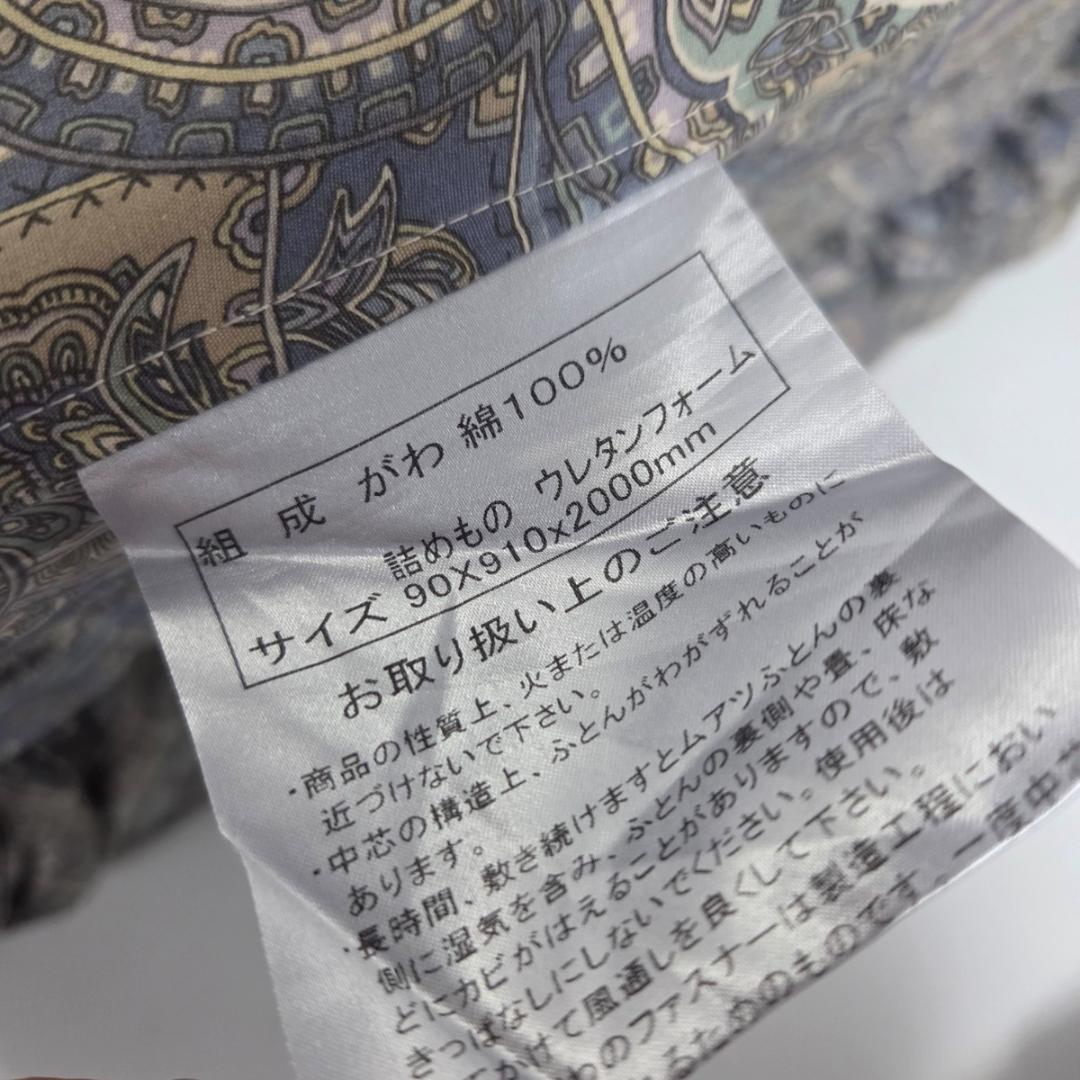 組 成 がわ 綿100%
詰めもの ウレタンフォーム
サイズ 90X910x2000mm
お取り扱い上のご注意
・商品の性質上、火または温度の高いものに
近づけないで下さい。
・中芯の構造上、ふとんがわがずれることが
あります。
・長時間、敷き続けますとムアツふとんの裏
側に湿気を含み、ふとんの裏側や畳、床な
どにカビがはえることがありますので、敷
きっぱなしにしないでください。使用後は
てかけて風通しを良くして下さい。
わのファスナーは製造工程におい
るためのものです。一度中